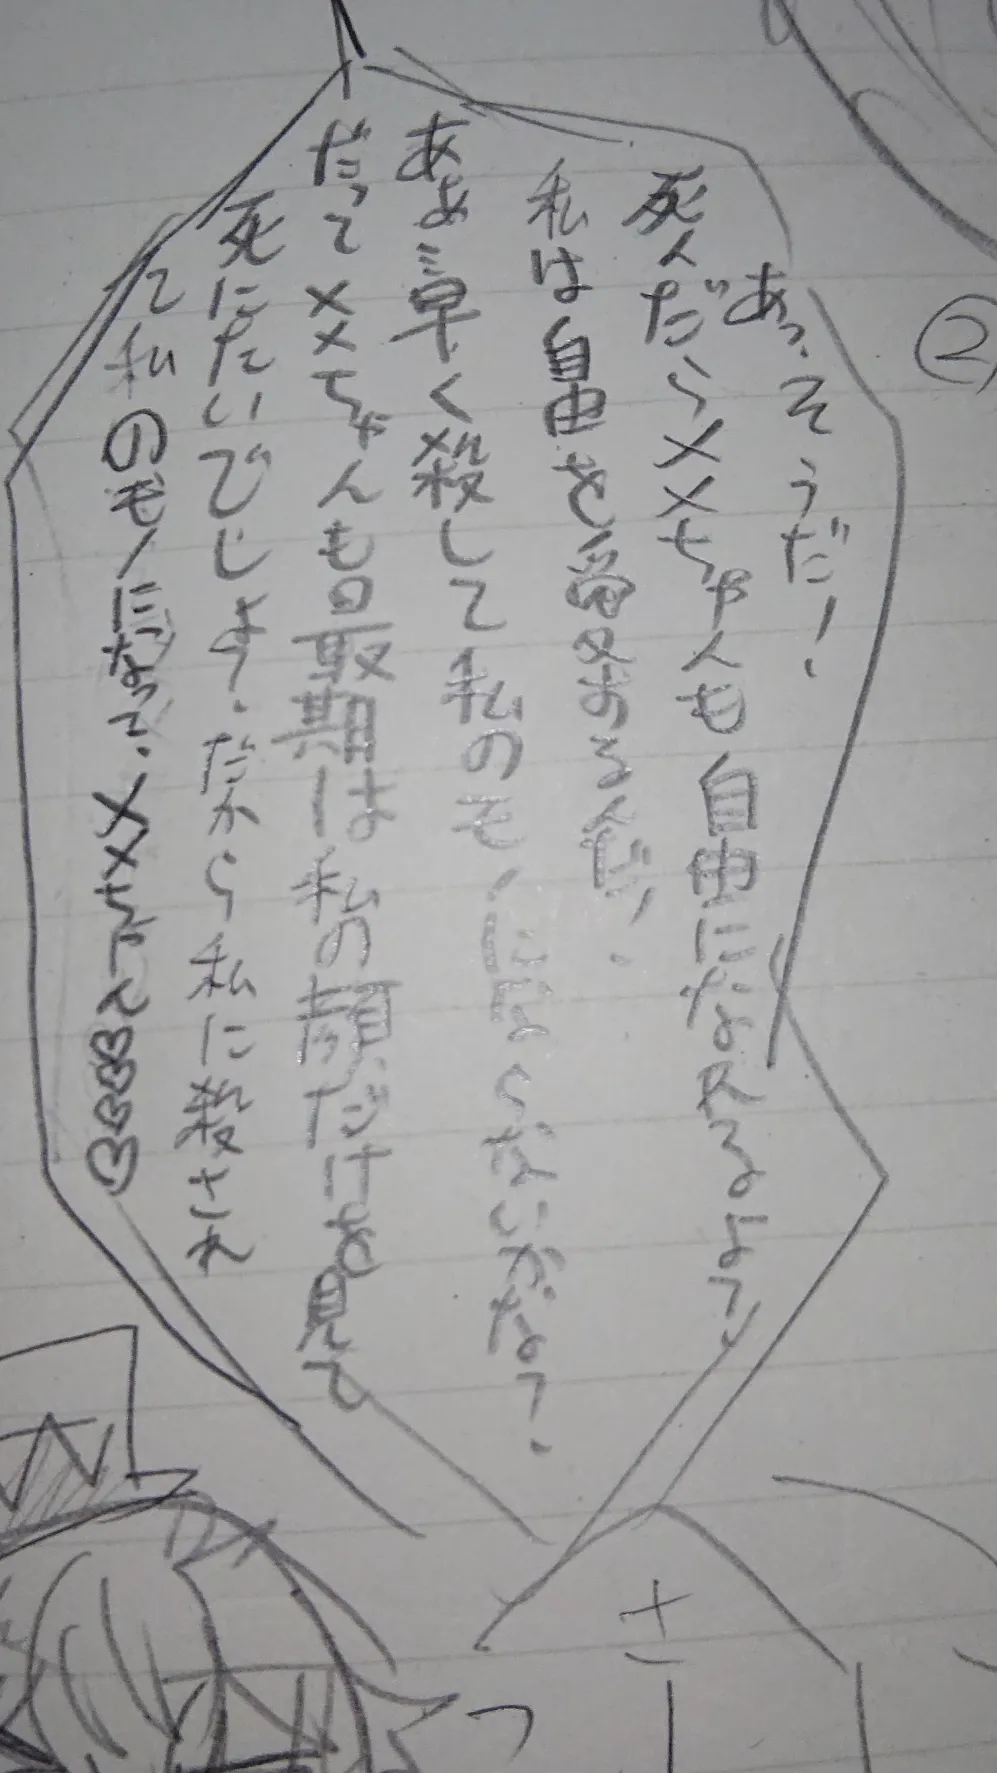 ②
あっそうだ!
死んだらメメちゃんも自由になれるよう
私は自由を愛おるんだ、
あぁ…早く殺して私のモノにならないかな?
だってメメちゃんも最期は私の顔だけを見て
死にたいでしょ?だから私に殺され
て私のモノになって、メメちゃん♡♡♡♡♡